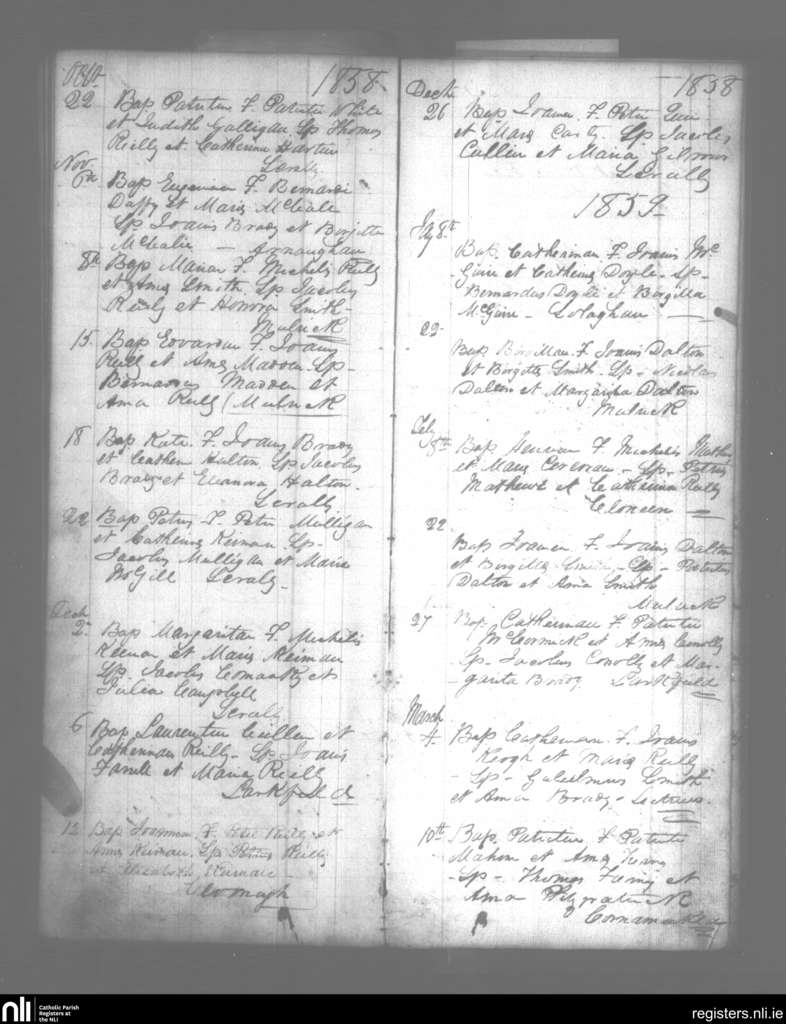 Octo. 1858.
22 Bap Patritum F. Patritii White
et Judith Galligan. Sp Thomas
Reilly et Catherina Hartin
Leraly
Nov.
6th Bap Eugenium F. Bernardi
Daffy et Maria McCale
Sp Joanis Brady et Birgitta
McCalie — Arnaughan
8th Bap Mariam F. Michelis Reilly
et Ama Smith. Sp. Jacobus
Reily et Honora Smith -
Mulrick
15. Bap Edvardum F. Joanis
Reilly et Ama Madden. Sp -
Bernardus Madden et
Ama Reilly / Mulrick
18 Bap Kate. F. Joanis Brady
et Cathen Halton. Sp Jacobus
Brady et Eleanora Halton.
Leraly
22 Bap Petrus F. Petri Mulligan
et Catherina Keirnan Sp -
Jacobus Mulligan et Maria
McGill Leraly -
Decb
2 Bap Margaritam F. Michelis
Keenan et Maria Keirnan
Sp. Jacobus et
Julia
Leraly
6 Bap Laurentium Cullen et
Catherinam Reilly - Sp. Joanis
Farrell et Maria Reilly
Larkfield
12 Bap Joannem F. Reilly et
Ama Keirnan. Sp Petrus Reilly
et Elizabeth Keirnan -
Cloonagh
Decb 1858
26 Bap Joanem. F. Petri
et Mary Casty. Sp Jacobus
Cullen et Maria Gilroow
Leraly
1859
Jay 8th
Bap. Catherinam F. Joanis Mc
Guire et Catherina Doyle - Sp -
Bernardus Doyle et Birgitta
McGuire - Lolaghan —
29.
Bap. Birgittam. F. Joanis Dalton
et Birgitta Smith. Sp - Nicolas
Dalton et Margarita Dalton
Mulrick
Feb
5th Bap F. Michelis Mathews
et Maria Corcoran - Sp - Patris
Mathews et Catherina Reilly
Cloneen —
22
Bap Joanem F. Joanis Dalton
et Birgitta Smith - Sp - Patritus
Dalton et Ama Smith
Mulrick
27 Bap. Catherinam F. Patritii
McCormick et Ama Conolly
Sp. Jacobus Conolly et Mar-
garita Brady. Larkfield
March
4 - Bap Catherinam. F. Joanis
Keogh et Maria Reilly
- Sp - Gulielmus Smith
et Ama Brady -
10th Bap. Patritum F Patritii
Mahon et Ama
- Sp - Thomas et
Ama Fitzpatrick
nli Catholic Parish
Registers at
the NLI
registers.nli.ie